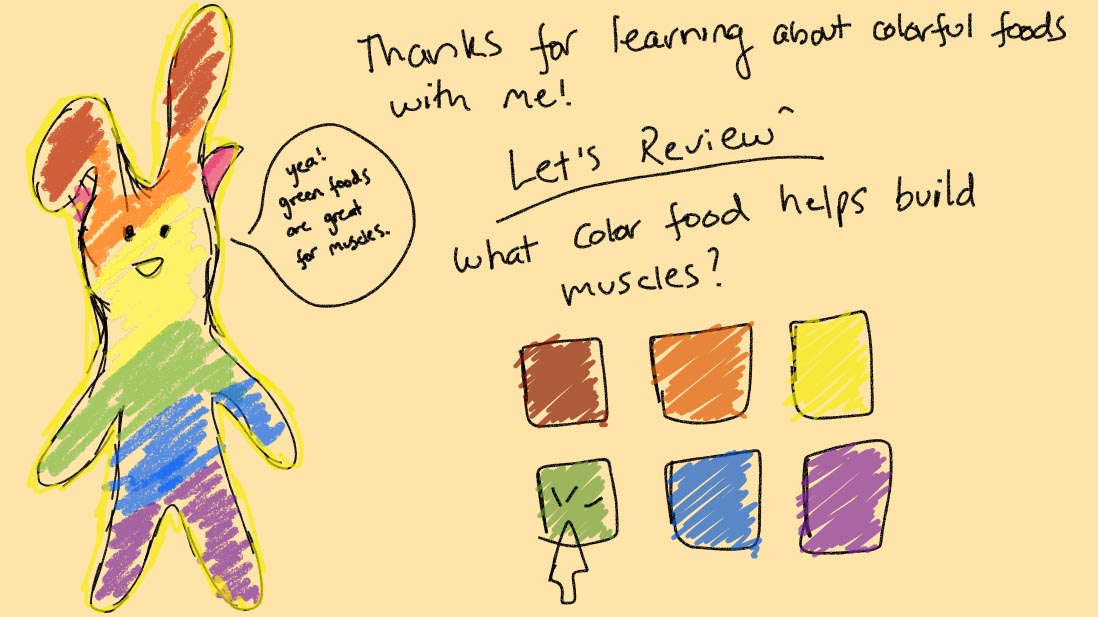 Thanks for learning about colorful foods
with me!
Let's Review
what color food helps build
muscles?
yea!
green foods
are great
for muscles.